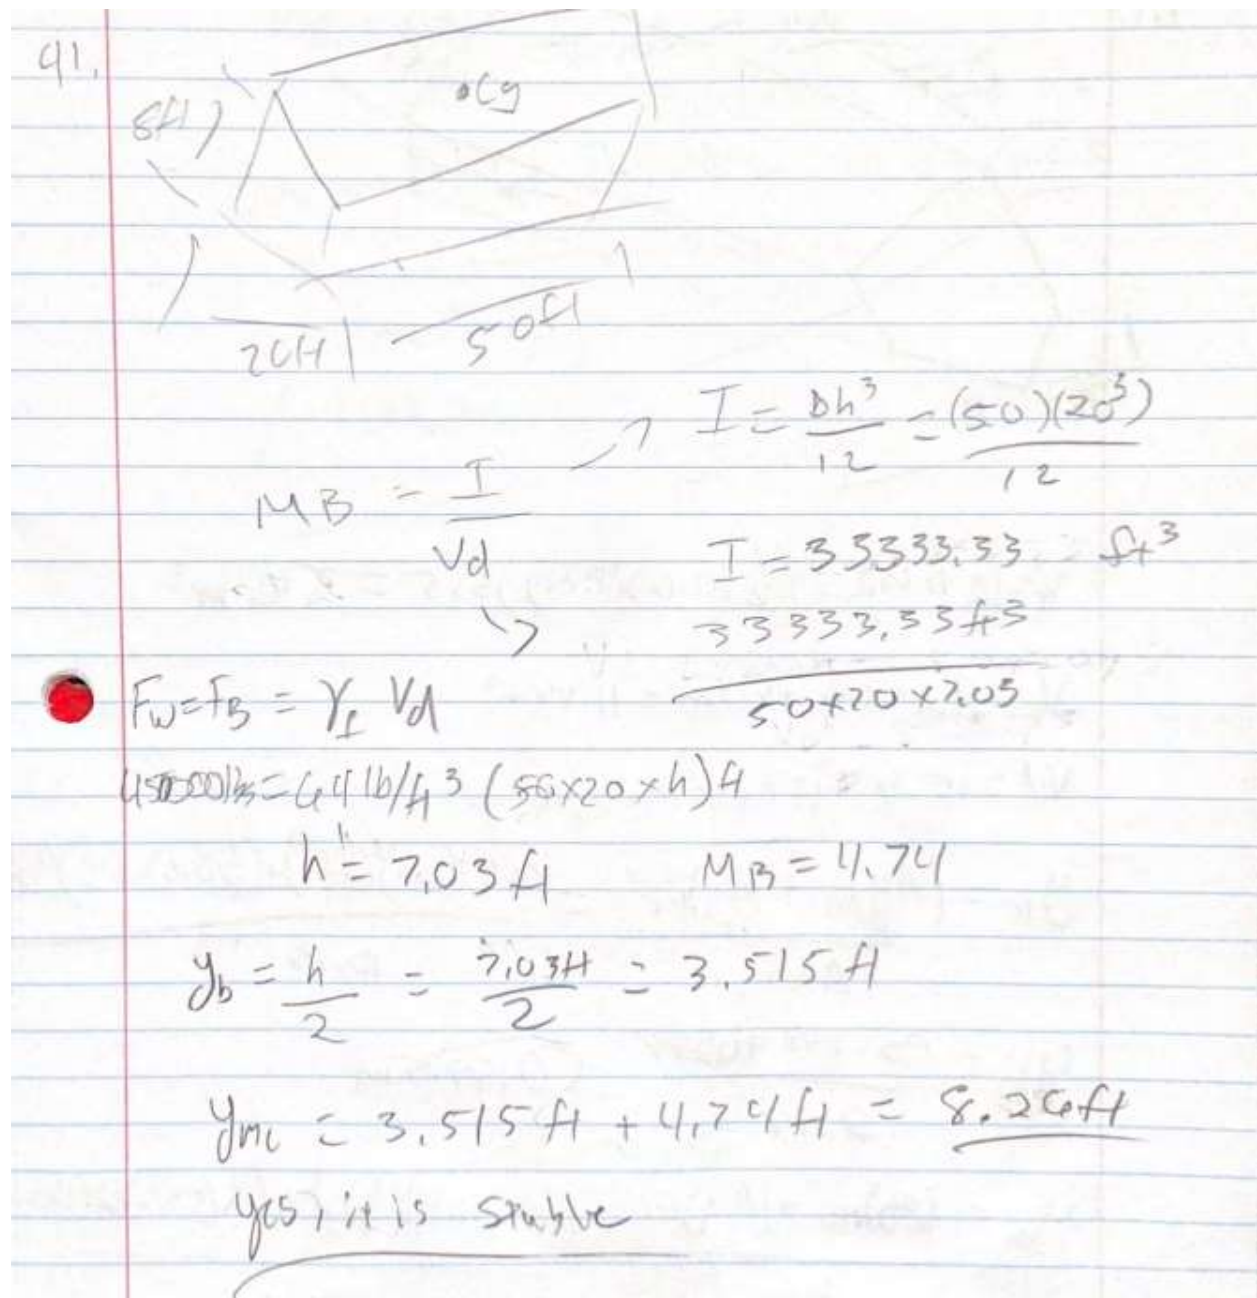 41.
8ft
•Cg
20ft
50ft
I = bh³/12 = (50)(20³)/12
MB = I/Vd
I = 33333.33 ft³
33333.33ft3
50x20x7.03
Fw=FB = γf Vd
450000lbs = 64 lb/ft3 (50x20xh)ft
h = 7.03 ft
MB = 4.74
yb = h/2 = 7.03ft/2 = 3.515 ft
ymc = 3.515 ft + 4.74 ft = 8.26ft
yes, it is stable